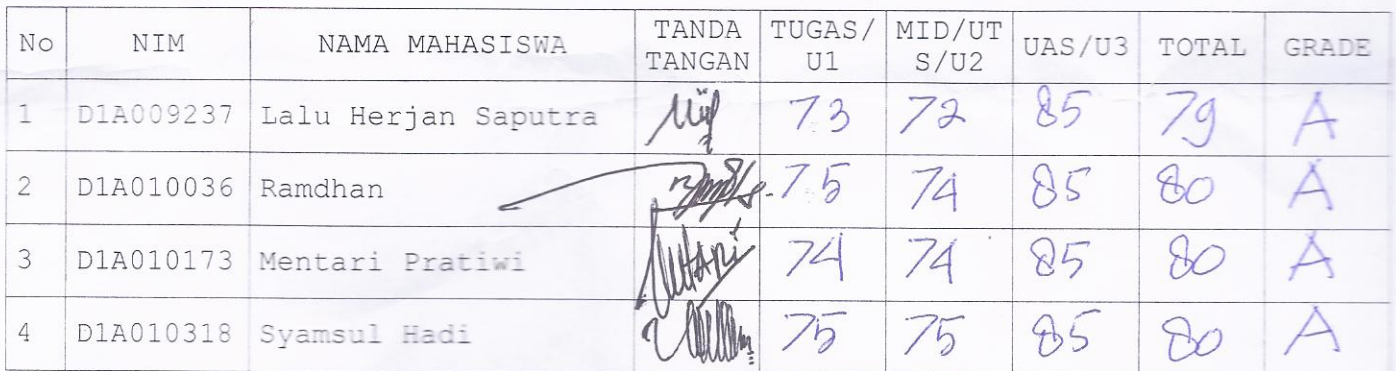 No NIM NAMA MAHASISWA TANDA TANGAN TUGAS/U1 MID/UTS/U2 UAS/U3 TOTAL GRADE
1 D1A009237 Lalu Herjan Saputra 73 72 85 79 A
2 D1A010036 Ramdhan 75 74 85 80 A
3 D1A010173 Mentari Pratiwi 74 74 85 80 A
4 D1A010318 Syamsul Hadi 75 75 85 80 A